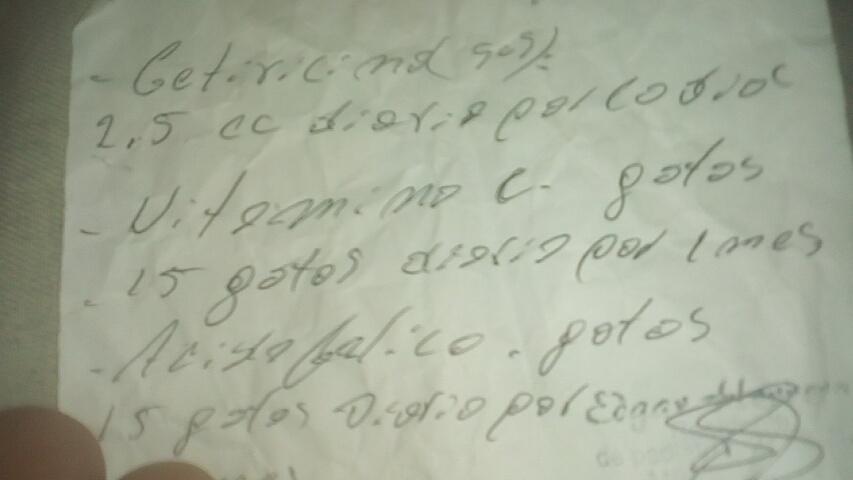 - Cetiricina
2.5 cc diario por
- Vitamina C. gotas
- 15 gotas diario por 1 mes
- Acido folico. gotas
15 gotas Diario por